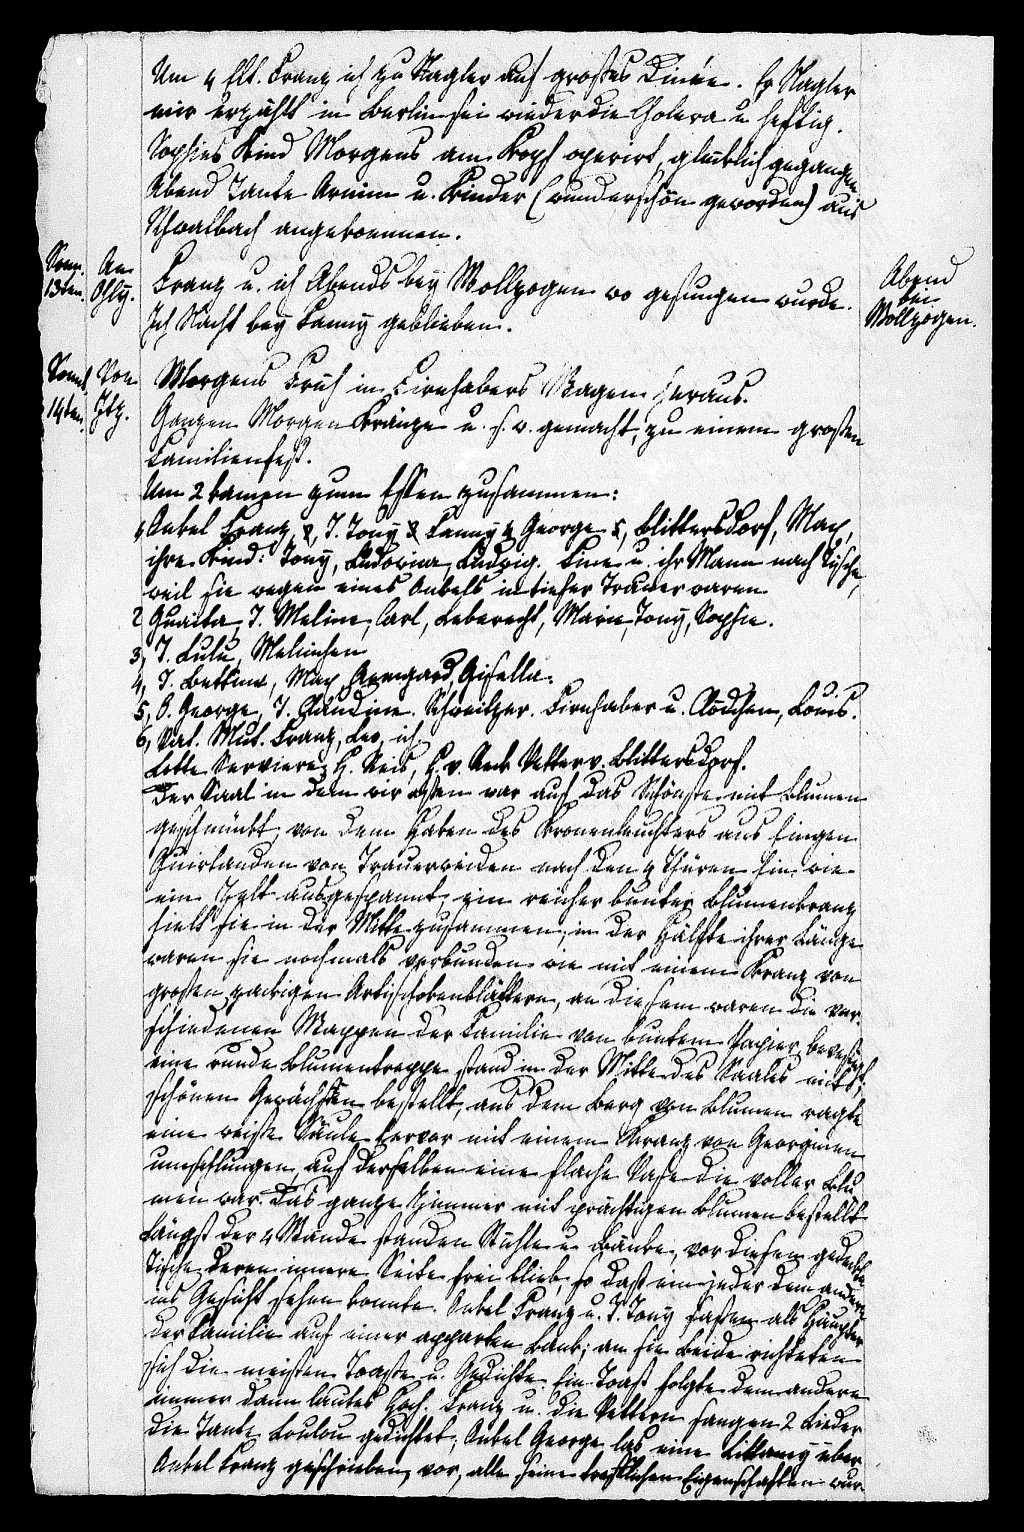 Um 4 Uhr. Franz ich zu Nagler auf großes Dinée. Hr Nagler
mir erzählt in Berlin sei wieder die Cholera u heftig.
Sophies Kind Morgens am Kopf operirt, glücklich gegangen
Abend Tante Arnim u. Kinder (wunderschön geworden) aus
Schwalbach angekommen.
Sonn. 13ten. An Franz u. ich Abends bey Wollzogen wo gesungen wurde. Abend bei Wollzogen.
Ich Nacht bey Fanny geblieben.
14ten. Von Morgens Früh in Firnhabers Wagen heraus.
Ganzen Morgen Kränze u. s. w. gemacht, zu einem großen
Familienfest.
Um 2 kamen zum Essen zusammen:
1, Onkel Franz, 2, T. Tony 3 Fanny 4 George 5, Blittersdorf, Max,
ihre Kind: Tony, Ludovica, Ludwig. Eine u. ihr Mann nach Tische,
weil sie wegen eines Onkels in tiefer Trauer waren
2 Guaita, T. Meline, Carl, Leberecht, Marie, Tony, Sophie.
3, T. Lulu, Melinchen
4, T. Bettine, Max, Armgard, Gisella.
5, O. George, T. Claudine. Schweitzer. Firnhaber u. Clödchen, Louis.
6, Vat. Mut. Franz, Leo, ich
Lotte Serviere, H. Reis, H. v. Vetter v. Blittersdorf.
Der Saal in dem wir aßen war auf das Schönste mit Blumen
geschmückt, von dem Haken des Kronenleuchters aus hingen
Guirlanden von Trauerweiden nach den 4 Thüren hin, wie
ein Zelt ausgespannt, ein reicher bunter Blumenkranz
hielt sie in der Mitte zusammen, in der Hälfte ihrer Länge
waren sie nochmals verbunden wie mit einem Kranz von
großen zackigen Artischokenblättern, an diesem waren die ver-
schiedenen Wappen der Familie von buntem Papier befestigt,
eine runde Blumentreppe stand in der Mitte des Saales mit
schönen Gewächsen bestellt, aus dem Berg von Blumen ragte
eine weiße Säule hervor mit einem Kranz von Georginen
umschlungen, auf derselben eine flache Vase die voller Blu
men war. Das ganze Zimmer mit prächtigen Blumen bestellt
Längst der 4 Wände standen Stühle u Bänke, vor diesen gedeckte
Tische deren innere Seite frei blieb, so daß ein jeder dem andern
ins Gesicht sehen konnte. Onkel Franz u. T. Tony saßen als Häupter
der Familie auf einer apparten Bank; an sie beide richteten
sich die meisten Toaste u. Gedichte. Ein Toast folgte dem andern
immer dann lautes Hoch. Franz u. die Vettern sangen 2 Lieder
die Tante Loulou gedichtet, Onkel George las eine Littaney über
Onkel Franz geschrieben, vor, alle seine trefflichen Eigenschaften wur-